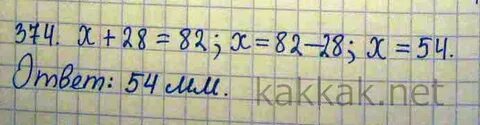 374. x + 28 = 82; x = 82 – 28; x = 54.
Ответ: 54 мм.
kakkak.net